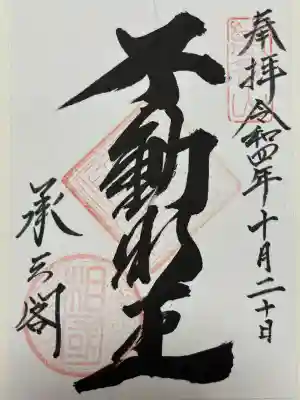 奉拝 令和四年十月二十日
不動明王
承天閣